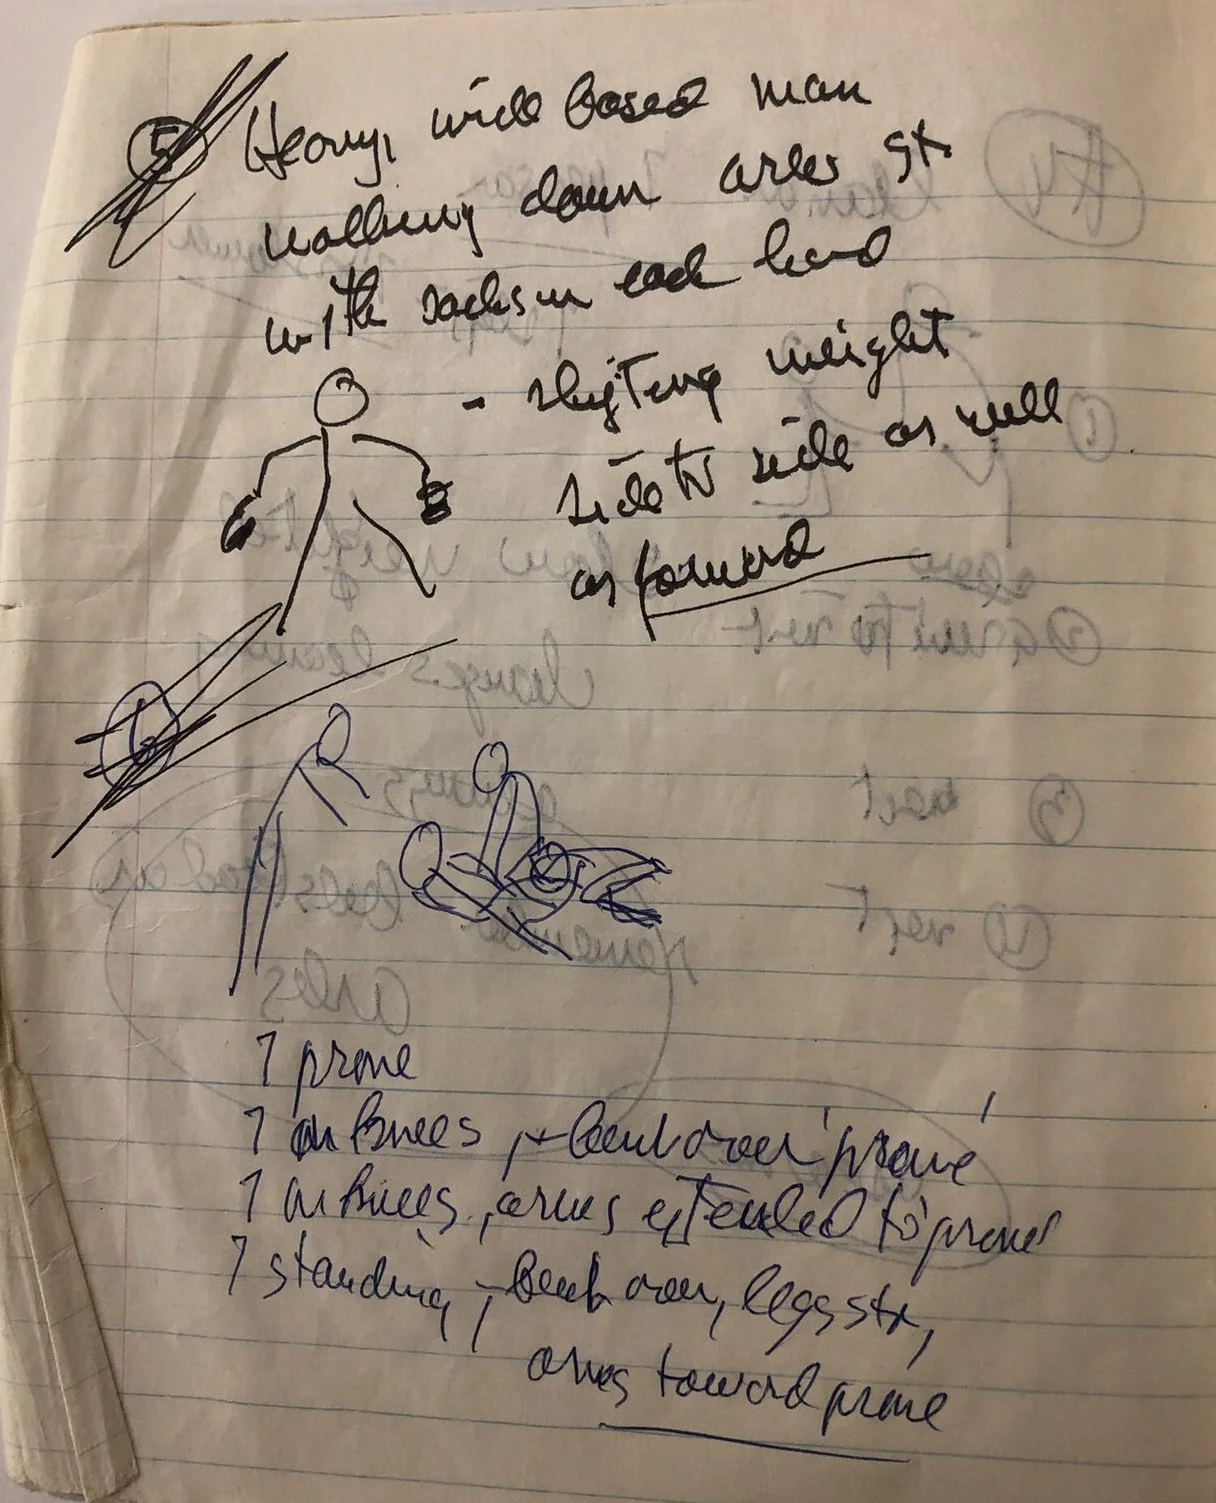 5 Heavy, wide based man
walking down aisles st
with sacks in each hand
- shifting weight
side to side as well
as forward
6
1 prone
1 on knees, + bent over 'prone'
1 on knees, arms extended to 'prone'
1 standing, - bent over, legs str,
arms toward prone